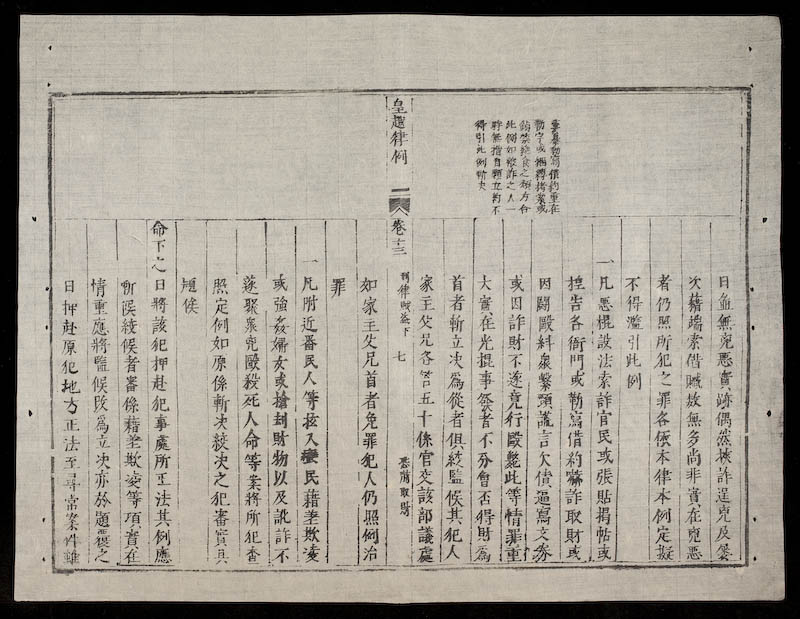 臺參勒寫借約重在
勒字或捆縛拷
鎖禁
此例如被詐之人一
時無措自願立約不
得引此例斬決
日並無兇惡實跡偶然挾詐逞兇及屢
次藉端索借贓數無多尚非實在兇惡
者仍照所犯之罪各依本律本例定擬
不得濫引此例
一凡惡棍設法索詐官民或張貼揭帖或
捏告各衙門或勒寫借約嚇詐取財或
因鬪毆糾衆繫頸謊言欠債逼寫文券
或因詐財不遂竟行毆斃此等情罪重
大實在光棍事發者不分曾否得財為
首者斬立决為從者俱絞監候其犯人
家主父兄各笞五十係官交該部議處
皇越律例
卷十三
刑律賊盜下
七
恐嚇取財
如家主父兄首者免罪犯人仍照例治
罪
一凡附近番民人等擅入蠻民藉差欺凌
或強姦婦女或搶刦財物以及訛詐不
遂聚衆兇毆殺死人命等案將所犯查
照定例如原係斬决絞决之犯審實具
題候
命下之日將該犯押赴犯事處所正法其例應
斬候絞候者審係藉差欺凌等項實在
情重應將監候改為立决亦於題覆之
日押赴原犯地方正法至尋常案件雖